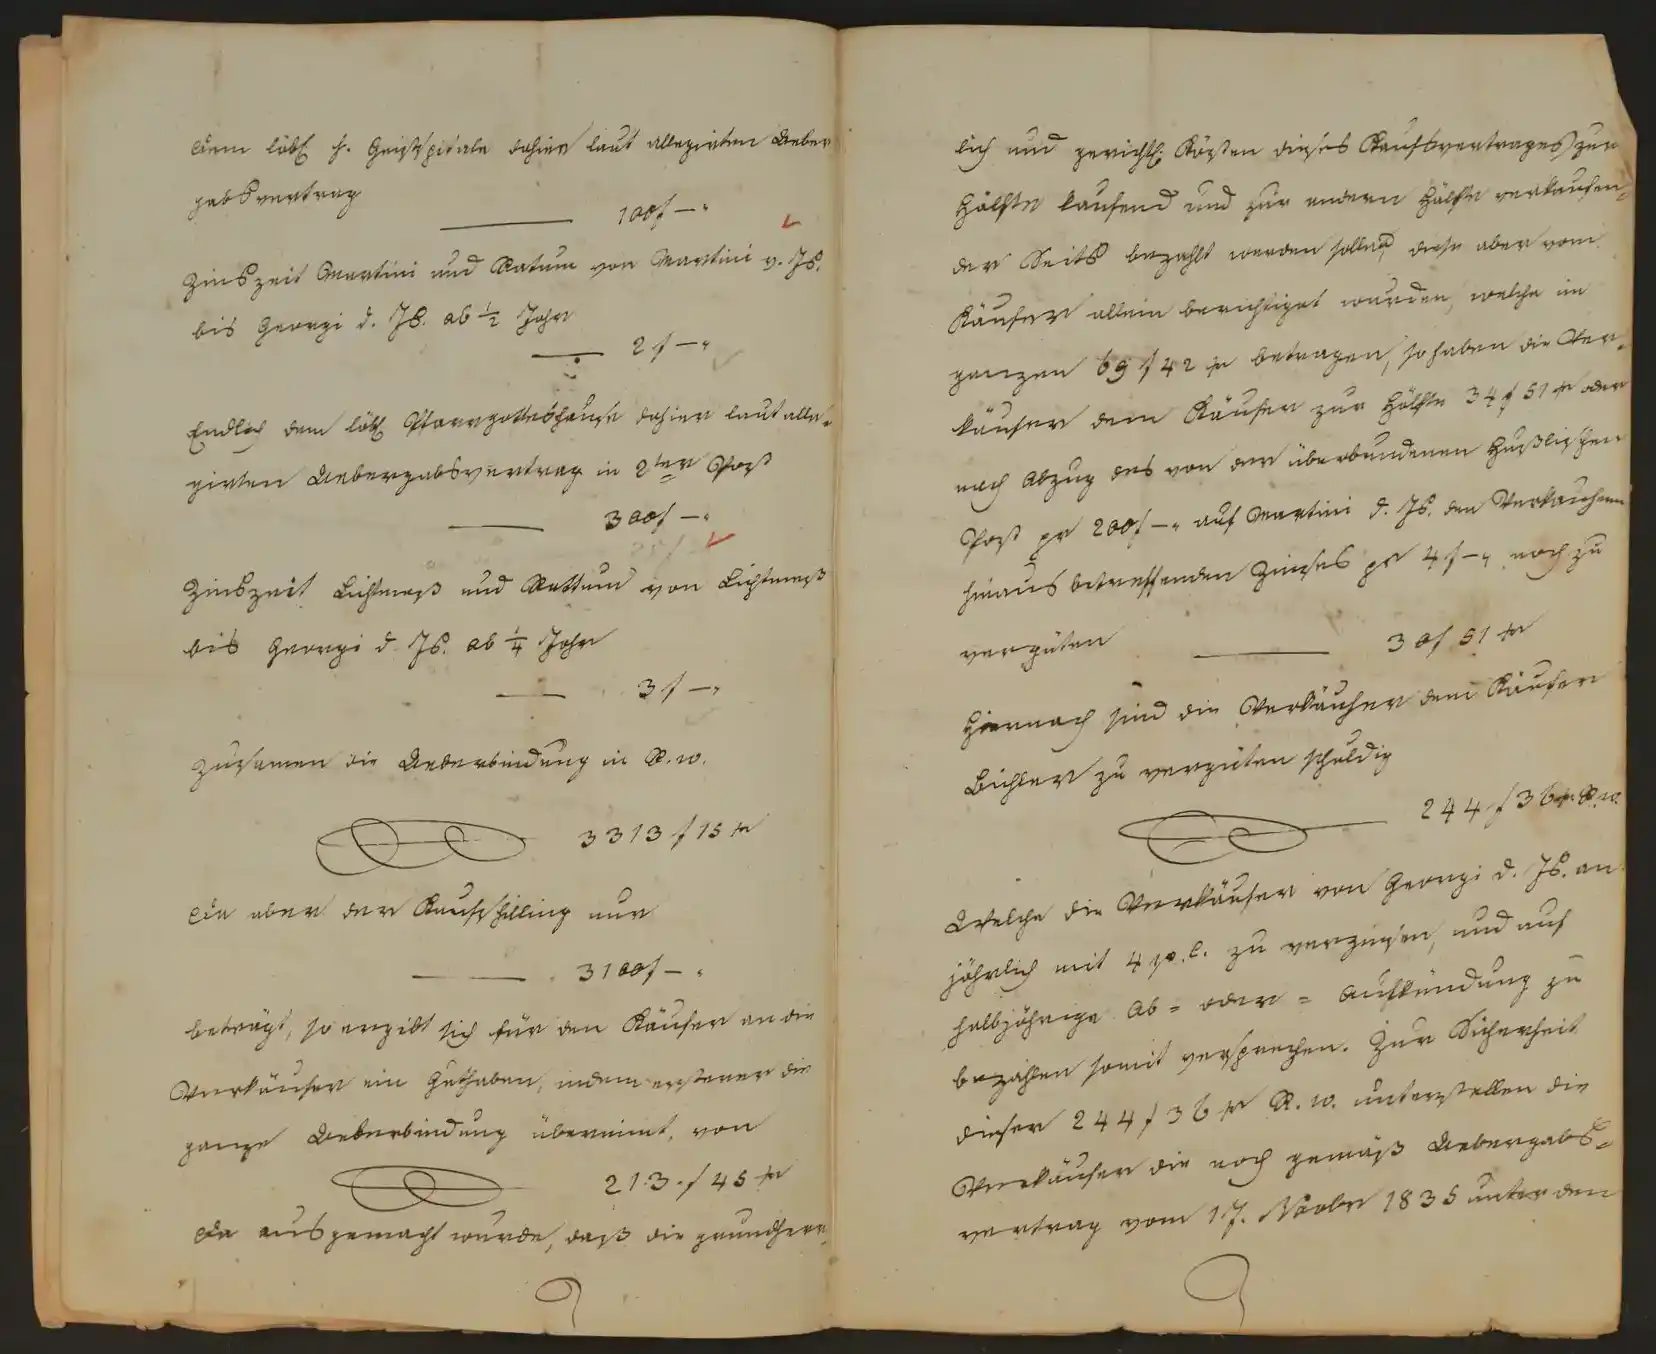 Dem löbl. h. Geistspitale dahier laut allegirten Ueber
gabsvertrag
100 f –„
Zinszeit Martini und Ratum von Martini v. Js.
bis Georgi d. Js. ab ½ Jahr
2 f –„
Endlich dem löbl. Pfarrgotteshause dahier laut alle-
girten Uebergabsvertrag in 2ter Post
300 f –„
Zinszeit Lichtmeß und Rattum von Lichtmeß
bis Georgi d. Js. ab ¼ Jahr
3 f –„
Zusamen die Ueberbindung in R. W.
3313 f 15 kr
Da aber der Kaufschilling nur
3100 f –„
beträgt, so ergibt sich für den Käufer an die
Verkäufer ein Guthaben, indem ersterer die
ganze Ueberbindung übernimt, von
213 f 45 kr
Da ausgemacht wurde, daß die grundherr-
lich und gerichtl. Kösten dieses Kaufsvertrages zur
Hälfte kaufend und zur andern Hälfte verkaufen-
der Seits bezahlt werden sollen, diese aber vom
Käufer allein berichtiget wurden, welche im
ganzen 69 f 42 kr betragen, so haben die Ver-
käufer dem Käufer zur Hälfte 34 f 51 kr oder
nach Abzug des von der überbundenen
Post pr 200 f –„ auf Martini d. Js. den Verkäufern
hinaus betreffenden Zinses pr 4 f –„ noch zu
vergüten
30 f 51 kr
Hiernach sind die Verkäufer dem Käufer
Bichler zu vergüten schuldig
244 f 36 kr R. W.
Welche die Verkäufer von Georgi d. Js. an
jährlich mit 4 p. C. zu verzinsen, und auf
halbjährige Ab= oder = Aufkündung zu
bezahlen somit versprechen. Zur Sicherheit
dieser 244 f 36 kr R. W. unterstellen die
Verkäufer die noch gemäß Uebergabs-
vertrag vom 17. Novbr 1835 unter den